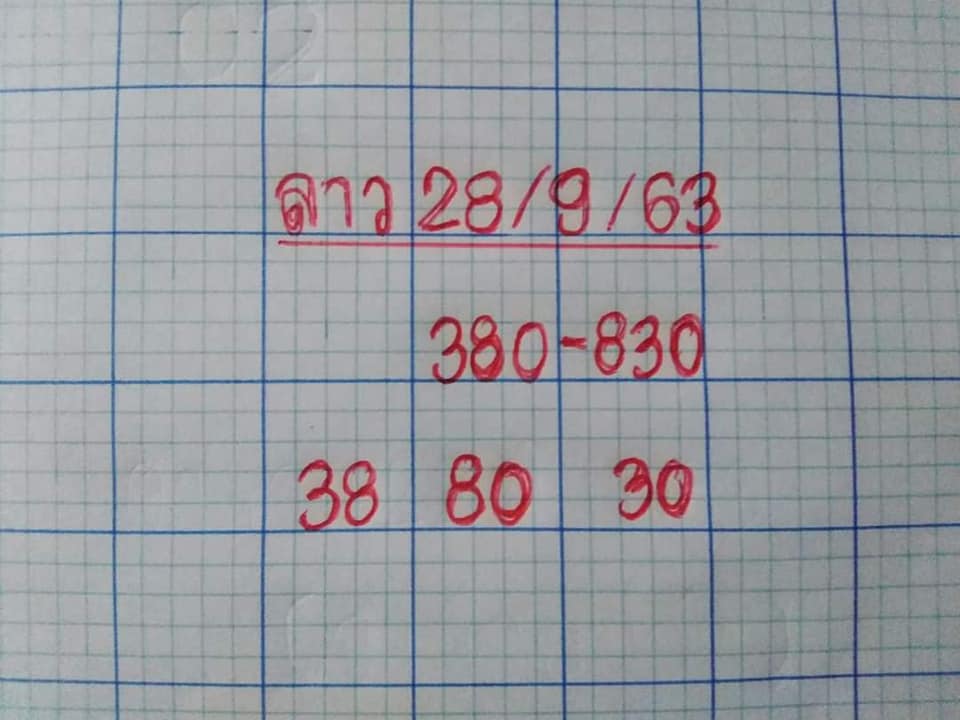 ลาว 28/9/63
380-830
38 80 30